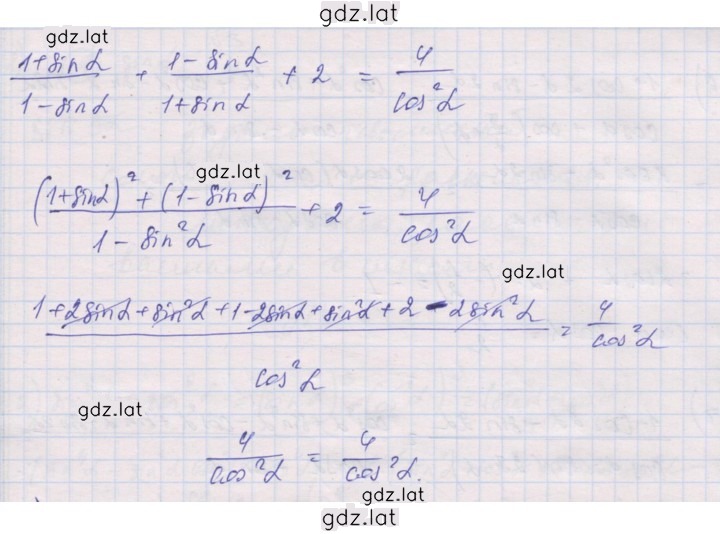 gdz.lat
gdz.lat
(1+sinα)/(1-sinα) + (1-sinα)/(1+sinα) + 2 = 4/cos²α
gdz.lat
((1+sinα)² + (1-sinα)²)/(1-sin²α) + 2 = 4/cos²α
gdz.lat
(1+2sinα+sin²α+1-2sinα+sin²α+2-2sin²α)/cos²α = 4/cos²α
gdz.lat
4/cos²α = 4/cos²α.
gdz.lat
gdz.lat